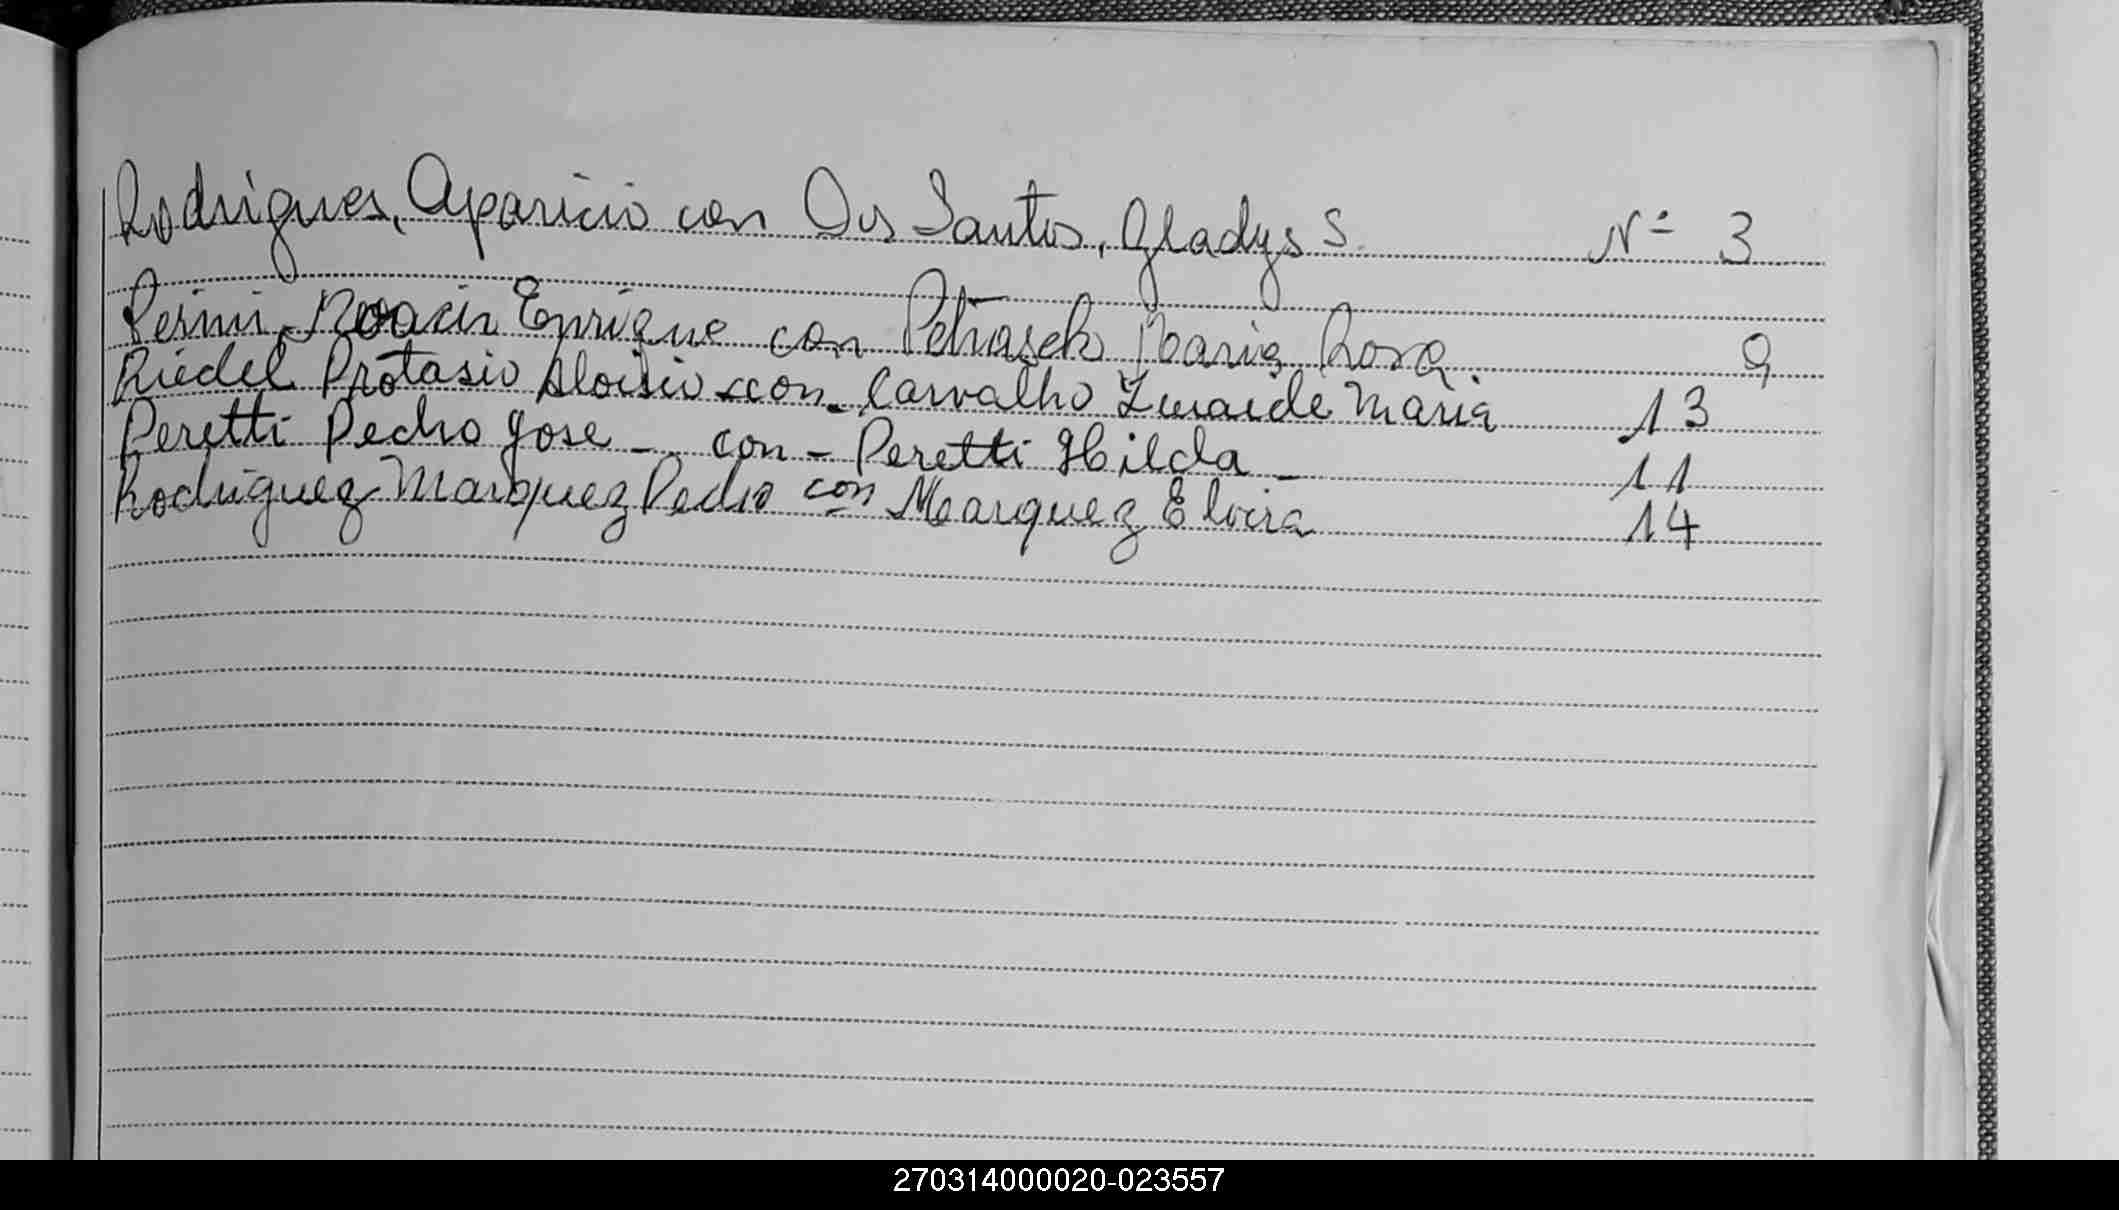 Rodrigues, Aparicio con Dos Santos, Gladys S. Nº 3
Enrique con Petrasek Maria Rosa. 9
Riedel Protasio Aloisio con Carvalho Zenaide Maria 13
Peretti Pedro Jose - con - Peretti Hilda - 11
Rodriguez Marquez Pedro con Marquez Elvira 14
270314000020-023557